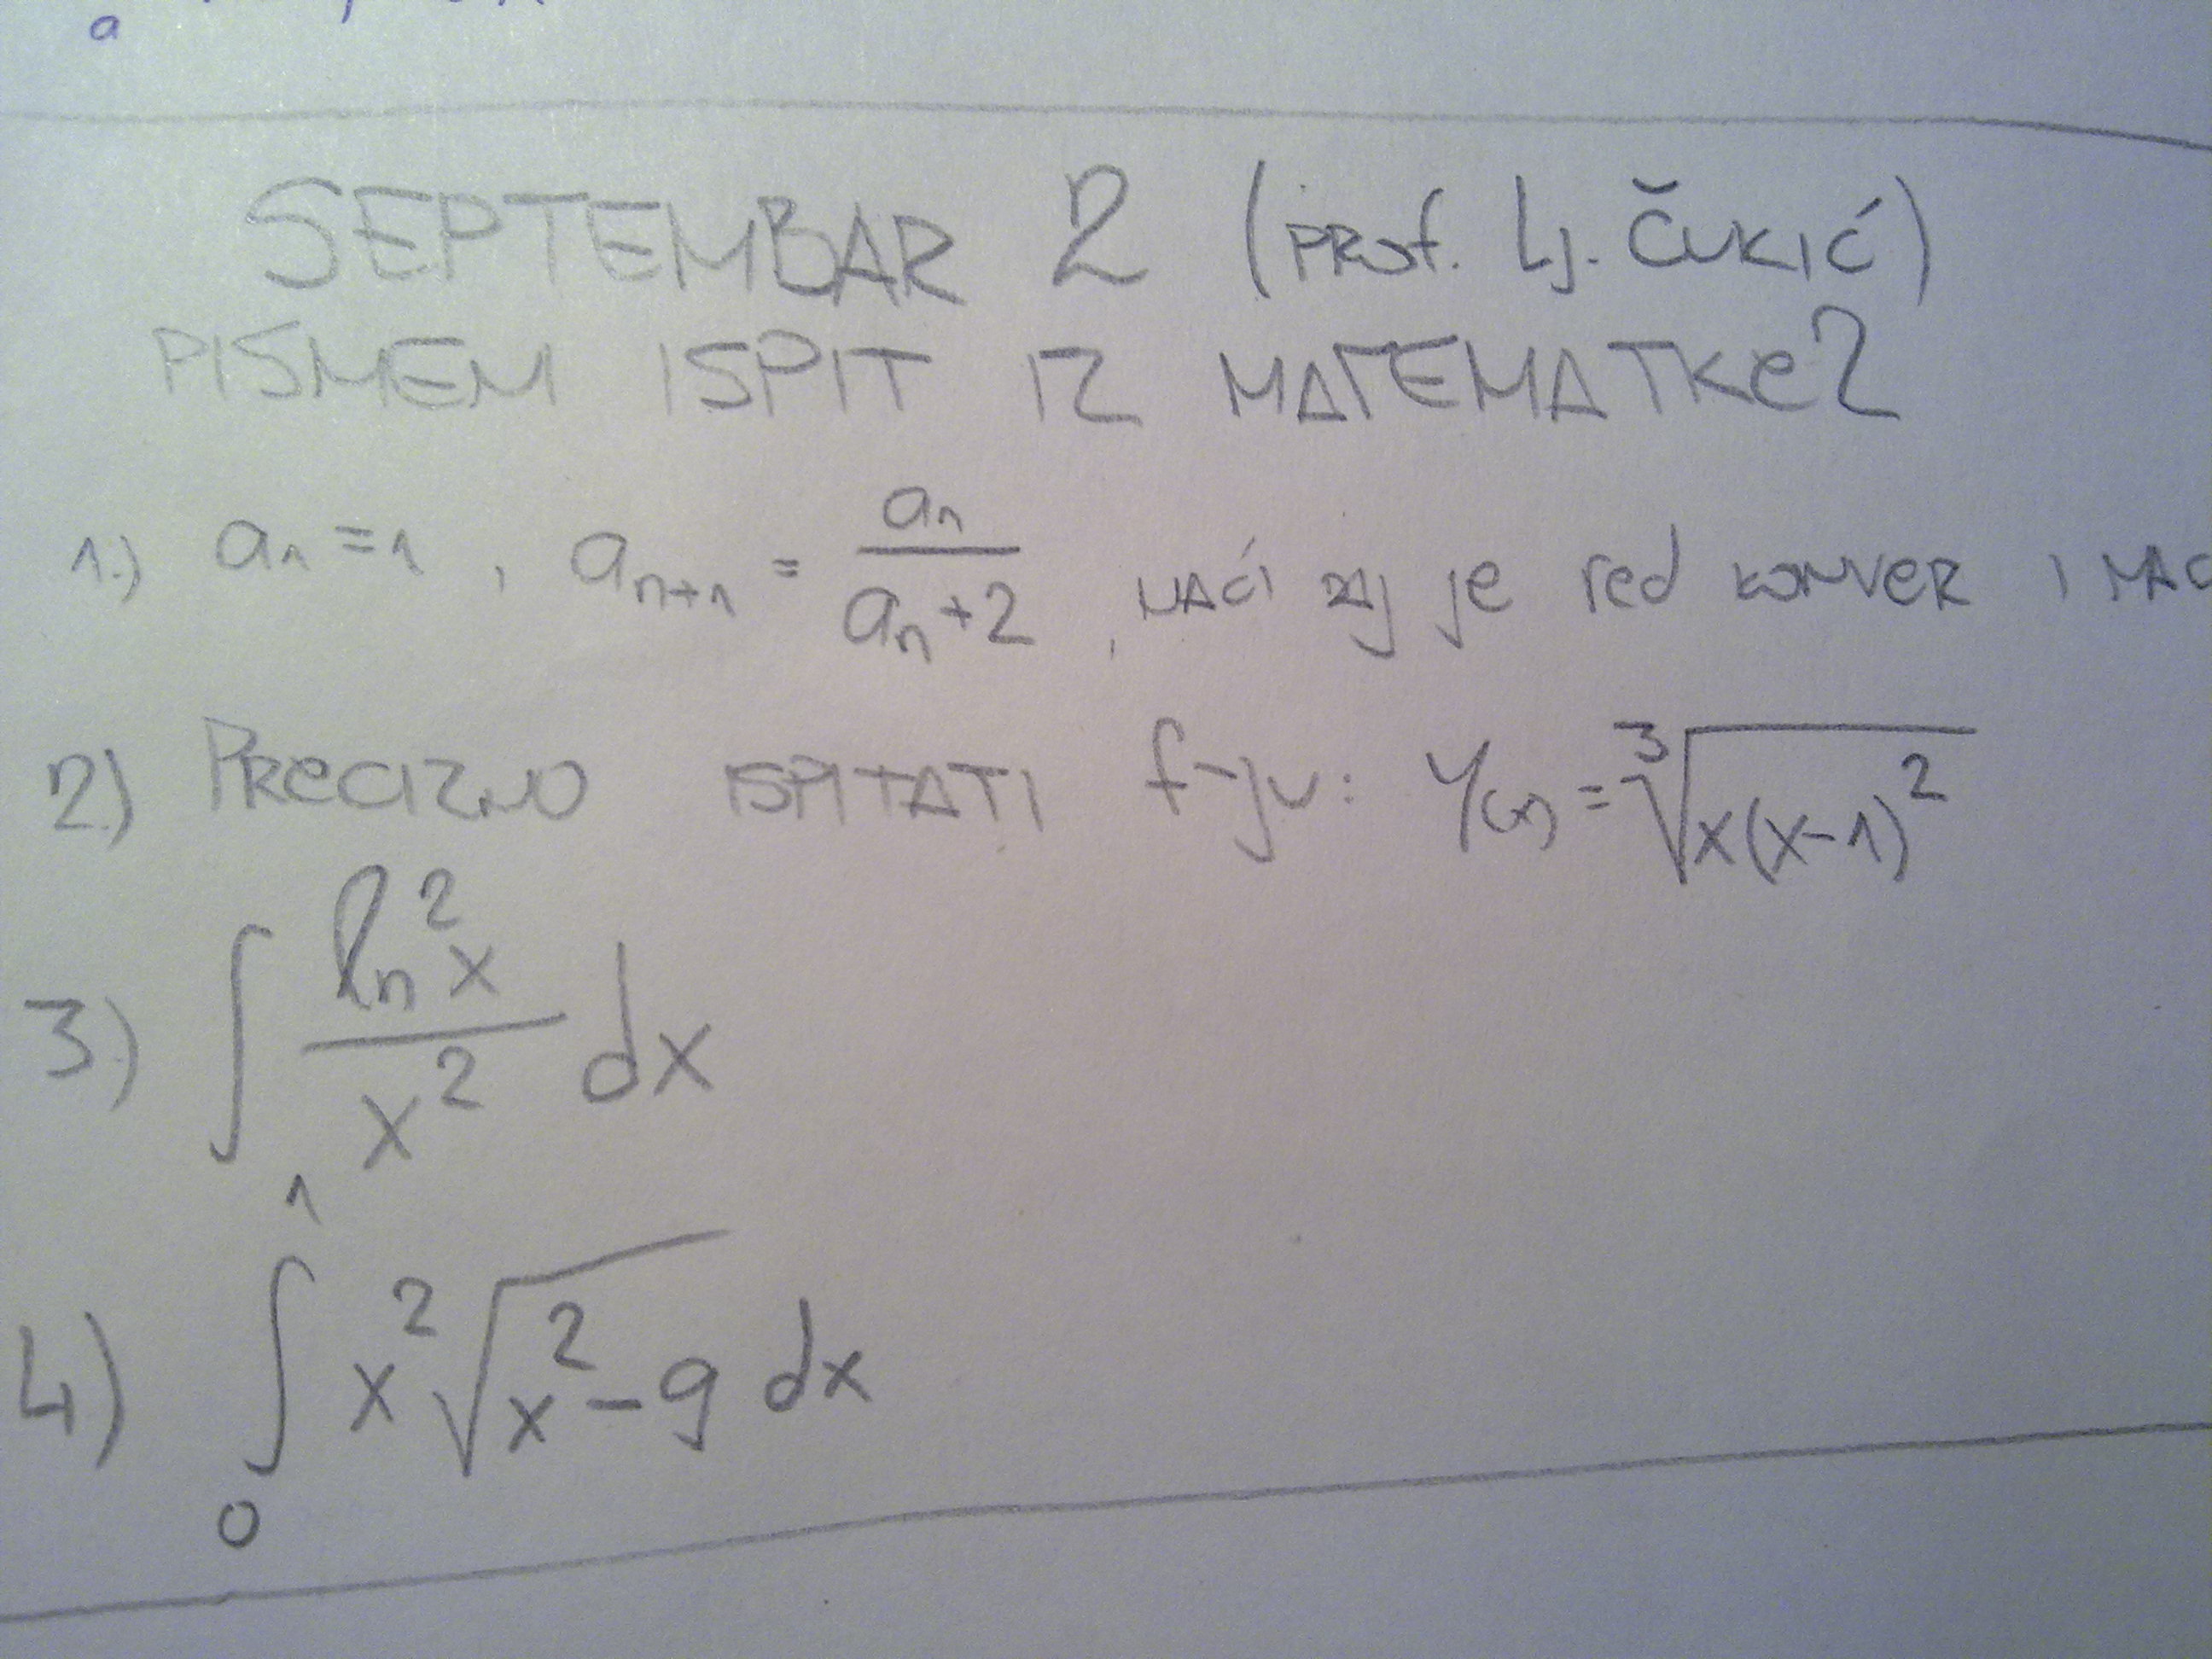 SEPTEMBAR 2 (PROF. Lj. ČUKIĆ)
PISMENI ISPIT IZ MATEMATKE 2
1.) a₁ = 1, aₙ₊₁ = aₙ / (aₙ + 2), NAĆI je red KONVER I NAĆ
2.) PRECIZNO ISPITATI f-ju: y(x) = ∛(x(x-1)²)
3.) ∫ ln²x / x² dx
4.) ∫₀¹ x² √(x² - 9) dx